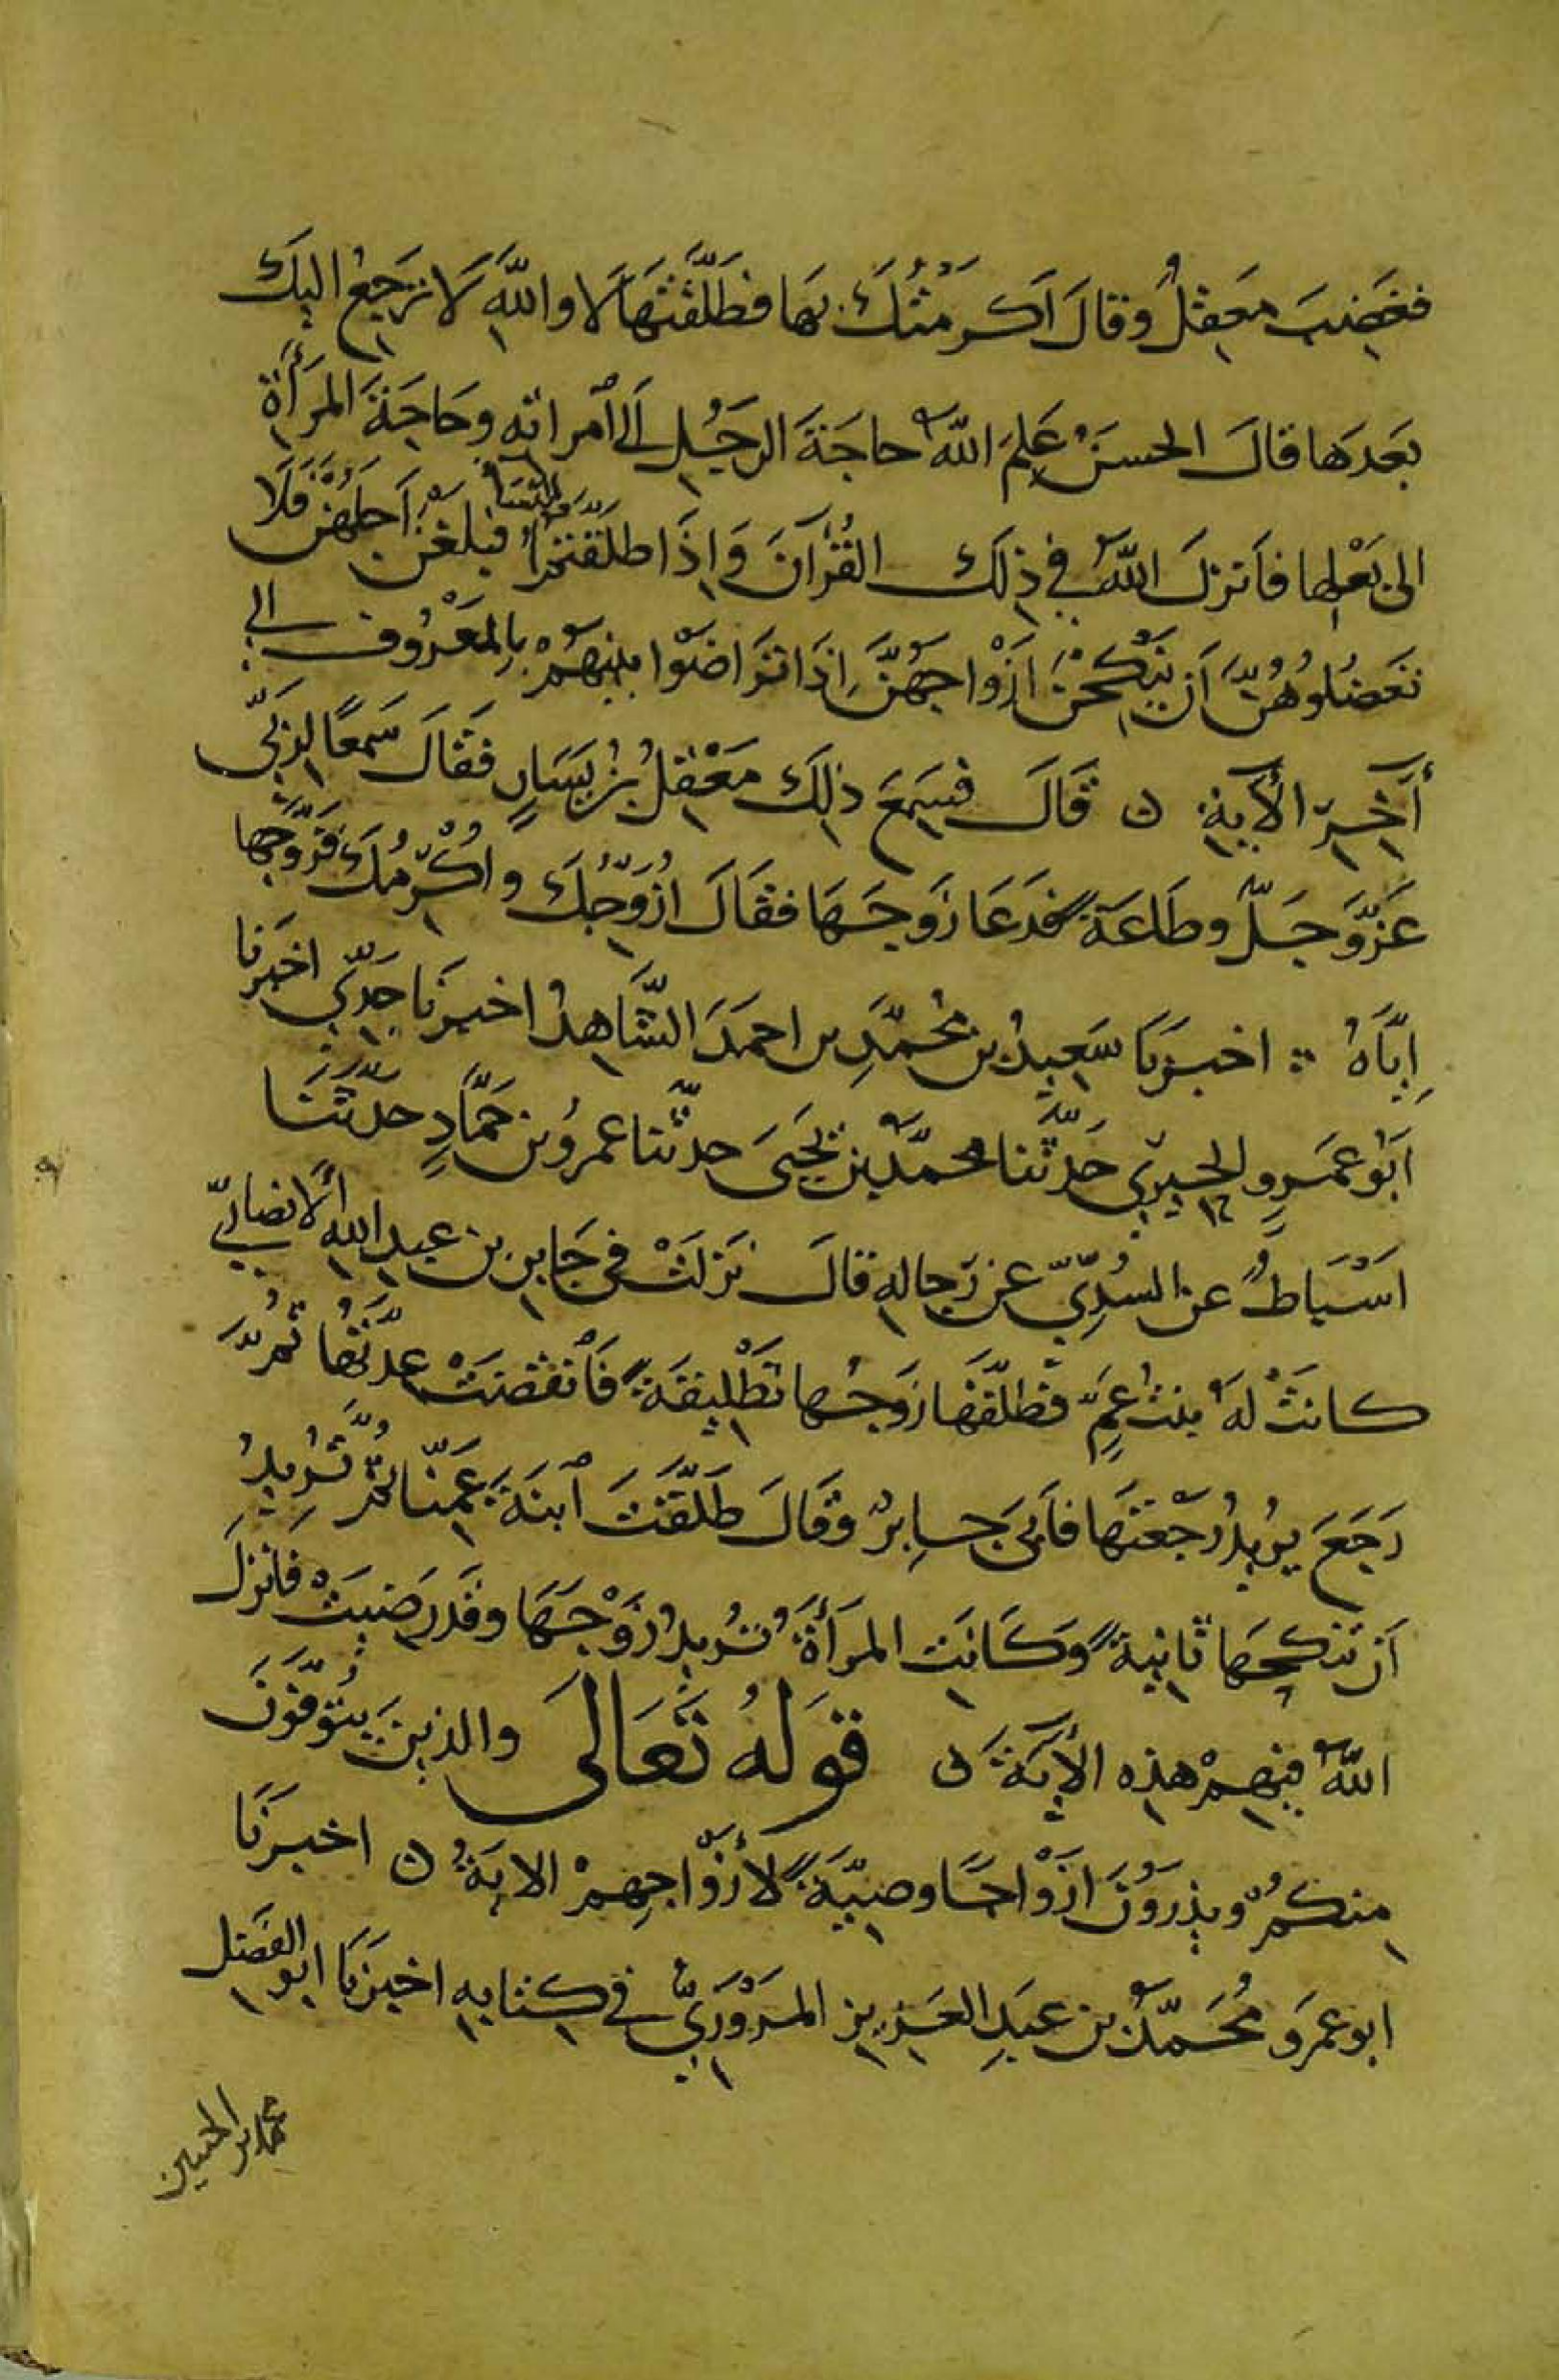 فغَضِبَ مَعقِلٌ وقالَ اَكرَمْتُكَ بهَا فطَلَّقتَهَا لَا واللهِ لَا تَرجعُ اليكَ
بعَدهَا قالَ الحسَنُ عَلِمَ اللهُ حاجَةَ الرجُلِ اِلى ٱمراته وحَاجَةَ المَرأَةِ
الى بَعْلِها فاَنزلَ اللهُ في ذلكَ القُرآنَ وَاِذَا طلَّقتُمُ النسَاَ فبلغْنَ اَجَلَهُنَّ فَلَا
تَعضُلُوهُنَّ اَن يَنْكِحْنَ اَزْوَاجَهُنَّ اِذَا تَرَاضَوْا بينهُمْ بِالمَعْرُوفِ الى
آخِرِ الأيةِ ن قَالَ فسَمِعَ ذلكَ مَعْقِلُ بنُ يَسَارٍ فَقَالَ سَمعًا لِرَبّي
عَزَّ وَجَلَّ وطَاعَةً فدَعَا زَوجَهَا فقَالَ اُزَوِّجُكَ واُكْرِمُكَ فَزَوَّجهَا
اِيَّاهُ ∴ اخبرَنا سَعِيدُ بن مُحمَّدِ بن احمَدَ الشَّاهِدُ اخبرَنا جَدِّي اخبَرنا
ابَوُ عمَرٍو الحِيرِيّ حَدثَّنا محمَّدُ بن يَحيَى حدثّنا عمرُو بن حَمَّادٍ حَدَّثنَا
اَسْبَاطُ عن السُدِيّ عن رجاله قالَ نَزلَتْ في جَابِرِ بن عبدِ اللهِ الأنصَارِيّ
كانَتْ لهُ بنتُ عَمٍّ فطلَّقَهَا زوجُها تَطْليقَةً فَٱنقضَتْ عِدَّتُها ثُمَّ
رَجَعَ يُريدُ رَجْعَتَهَا فاَبَى جَابِرٌ وقَالَ طَلَّقتَ ٱبنَةَ عَمِّنَا ثُمَّ تُرِيدُ
اَن تنكِحَهَا ثانِيةً وَكَانَت المَرأَةُ تُريدُ زَوْجَهَا وقَد رَضِيَتْ فَانزلَ
اللهُ فيهِمْ هذِه الأيَةَ ن قَولهُ تَعَالَى والذينَ يُتَوَفَّوْنَ
مِنكُمْ ويذَرَوُنَ ازْوَاجًا وصِيَّةً لأزْوَاجِهِمْ الايَةُ ن اخبرَنَا
ابو عمَرو مُحَمَّدُ بن عَبدِ العَزِيزِ المَرْوَزِيّ في كتابِه اخبَرنَا ابو الفَضلِ
محمد بن الحسين